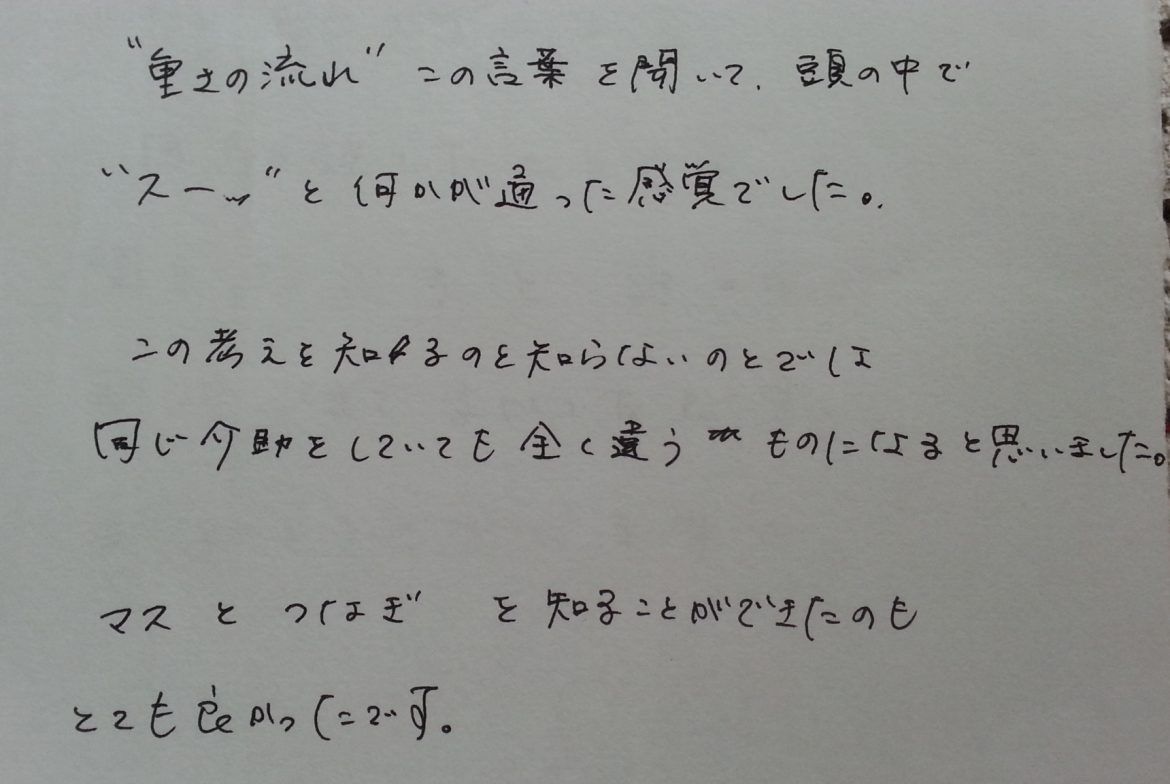 "重さの流れ" この言葉を聞いて、頭の中で
"スーッ"と何かが通った感覚でした。
この考えを知るのと知らないのとでは
同じ介助をしていても全く違うものになると思いました。
マスとつなぎ を知ることができたのも
とても良かったです。